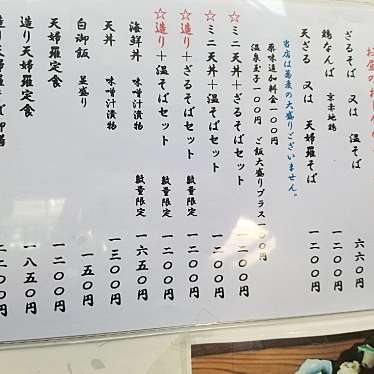 ざるそば 又は 温そば 六六〇円
鶏なんば 京赤地鶏 一二〇〇円
天ざる 又は 天婦羅そば 一二〇〇円
当店は蕎麦の大盛りございません。
薬味追加料金一〇〇円
温泉玉子一〇〇円 ご飯大盛りプラス一〇〇円
☆ミニ天丼＋ざるそばセット 一二〇〇円
☆ミニ天丼＋温そばセット 一二〇〇円
☆造り＋ざるそばセット 数量限定 一二〇〇円
☆造り＋温そばセット 数量限定 一二〇〇円
海鮮丼 味噌汁漬物 数量限定 一六五〇円
天丼 味噌汁漬物 一三〇〇円
白御飯 並盛り 一五〇円
天婦羅定食 一二〇〇円
造り天婦羅定食 一八五〇円
二二〇〇円